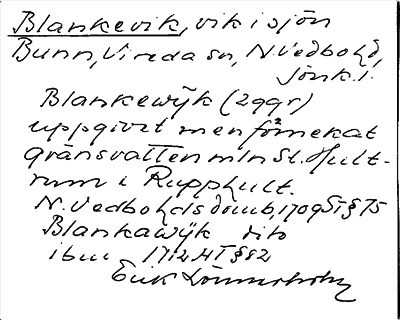 Blankevik, vik i sjön
Bunn, Vireda sn, N. Vedbo hd,
Jönk. l.
Blankewÿk (2 ggr)
uppgivet men förnekat
gränsvatten mln St. Hult-
rum i Rupphult.
N. Vedbo hds domb, 1709 St § 75
Blankawÿk dito
ibm 1712 HT § 82
Erik